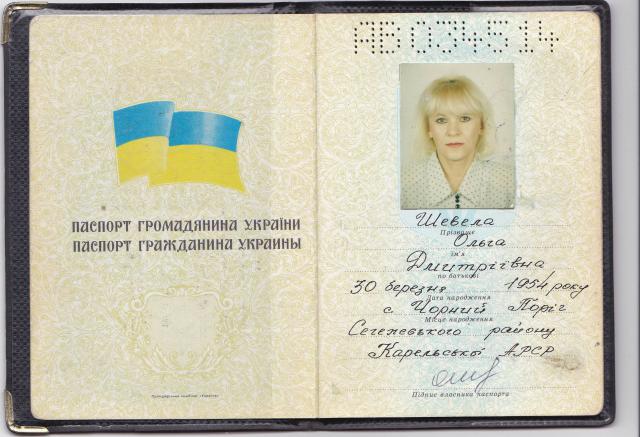 ПАСПОРТ ГРОМАДЯНИНА УКРАЇНИ
ПАСПОРТ ГРАЖДАНИНА УКРАИНЫ
АВ 034514
Шевела
Прізвище
Ольга
ім'я
Дмитріївна
по батькові
30 березня 1954 року
Дата народження
с Чорний Поріг
Місце народження
Сегежевського району
Карельської АРСР
Підпис власника паспорта